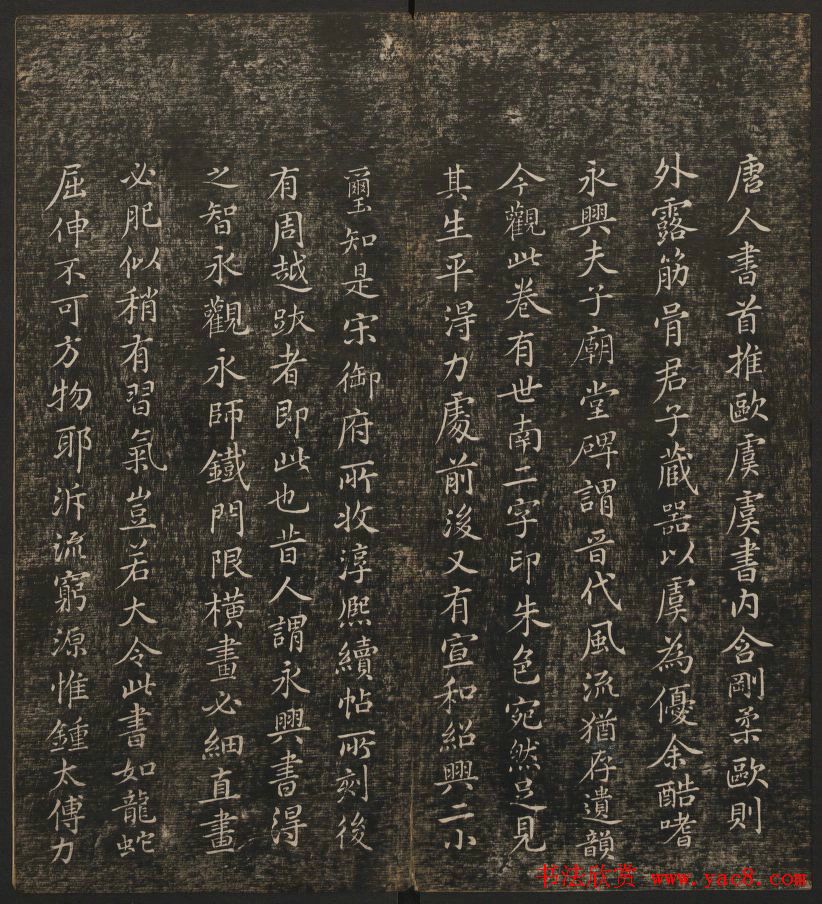 唐人書首推歐虞虞書内含剛柔歐則
外露筋骨君子藏器以虞為優余酷嗜
永興夫子廟堂碑謂晉代風流猶存遺韻
今觀此卷有世南二字印朱色宛然足見
其生平得力處前後又有宣和紹興二小
璽知是宋御府所收淳熈續帖所刻後
有周越跋者即此也昔人謂永興書得
之智永觀永師鐵門限橫畫必細直畫
必肥似稍有習氣豈若大令此書如龍蛇
屈伸不可方物耶泝流窮源惟鍾太傅力
书法欣赏 www.yac8.com